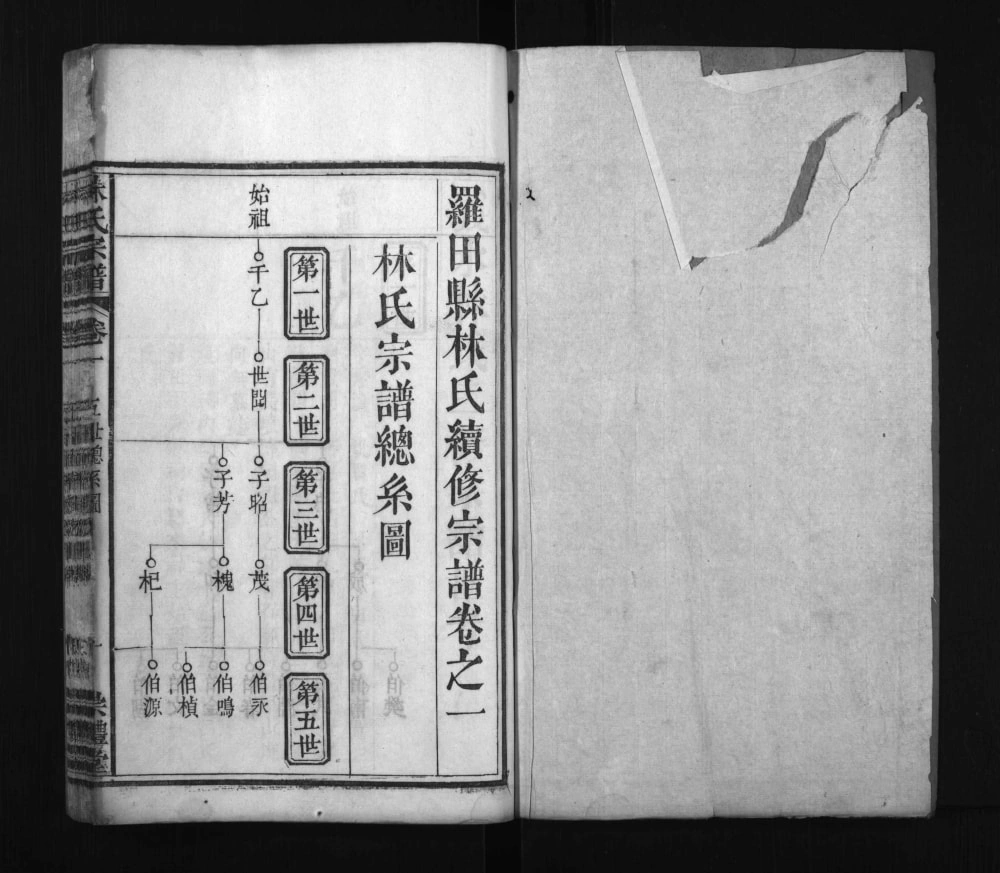 羅田縣林氏續修宗譜卷之一
林氏宗譜總系圖
第一世
第二世
第三世
第四世
第五世
始祖
千乙
世閏
子昭
茂
伯永
子芳
槐
伯鳴
伯楨
杞
伯源
林氏宗譜
卷一
五世總系圖
一
崇禮堂